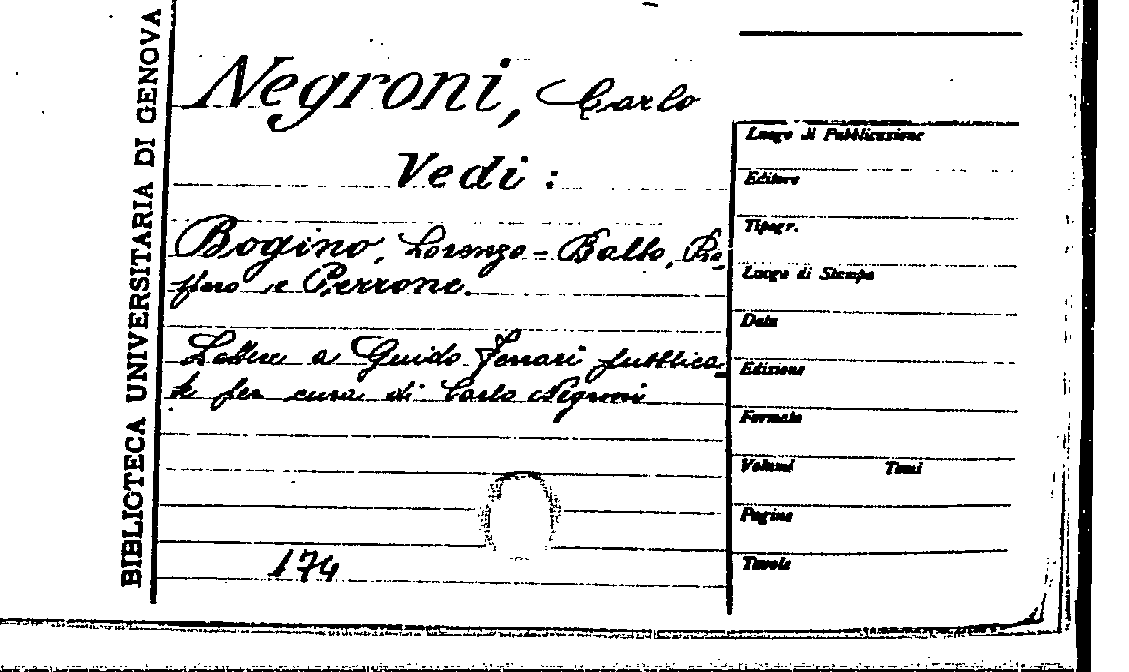 BIBLIOTECA UNIVERSITARIA DI GENOVA
Negroni, Carlo
Vedi :
Bogino, Lorenzo - Balbo, Pro-
spero e Perrone.
Lettere a Guido Ferrari pubblica-
te per cura di Carlo Negroni
174
Luogo di Pubblicazione
Editore
Tipogr.
Luogo di Stampa
Data
Edizione
Formato
Volumi Tomi
Pagine
Tavole